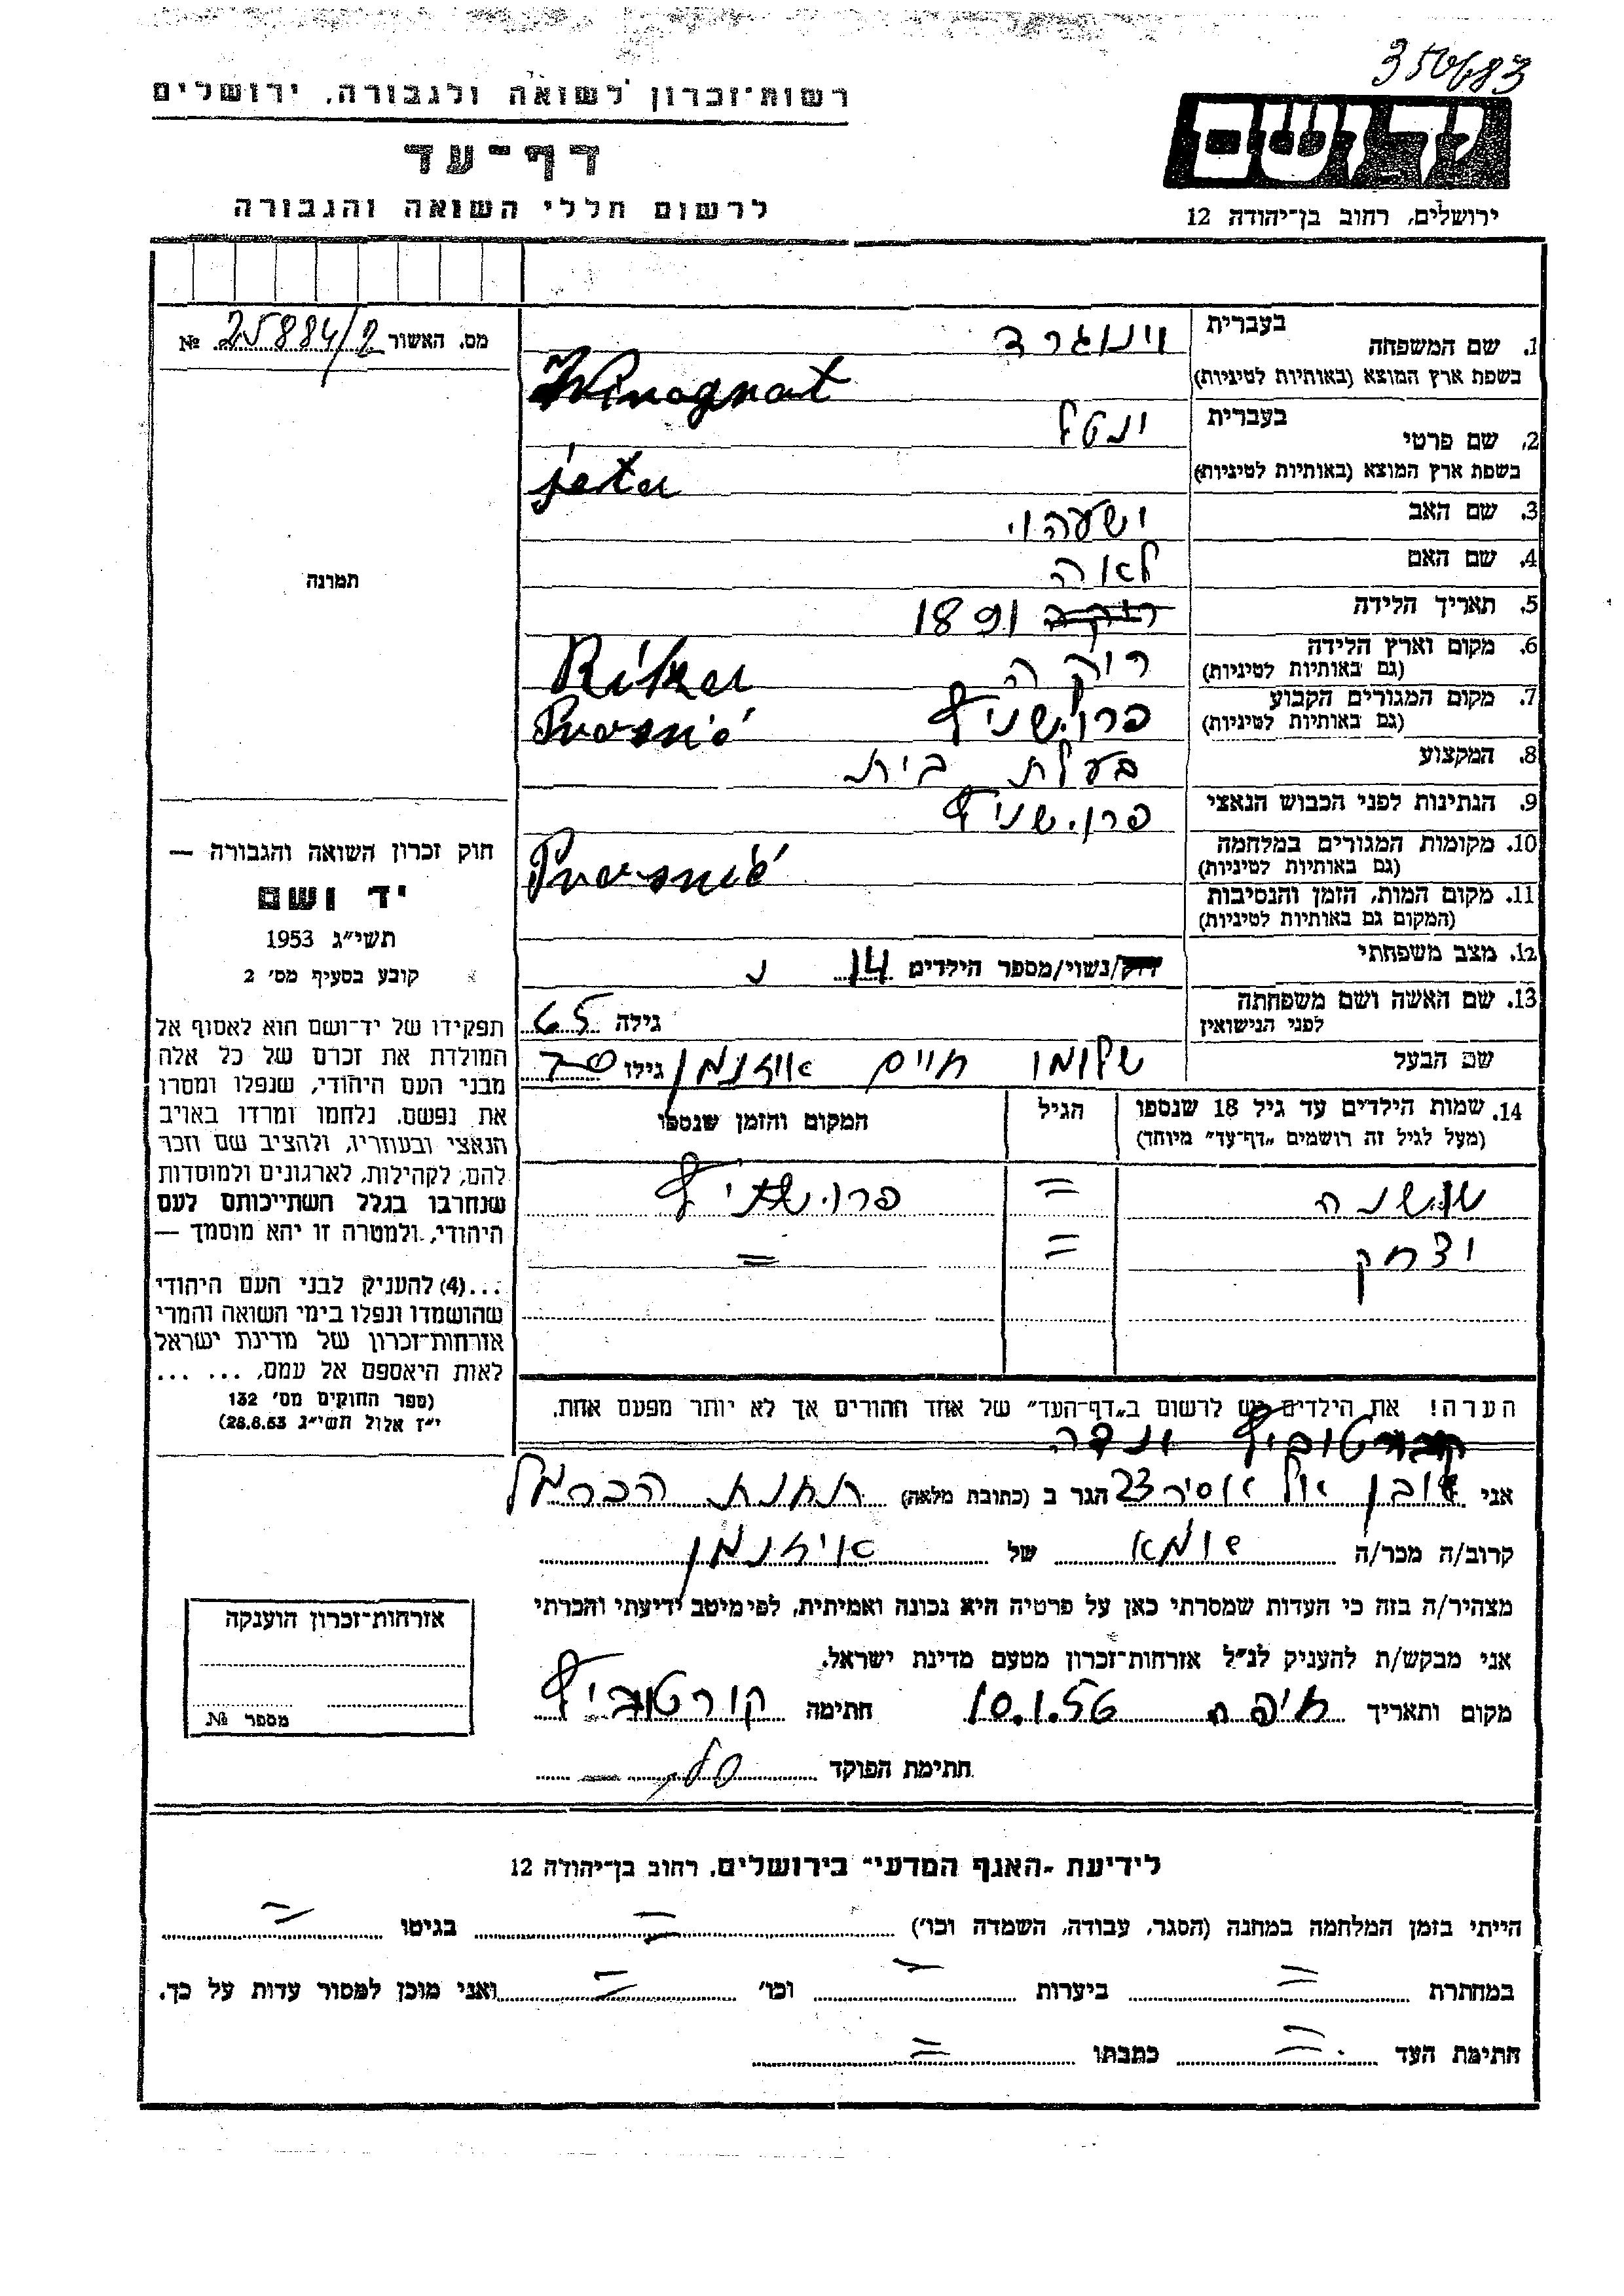 350683
רשות־זכרון לשואה ולגבורה, ירושלים
דף־עד
לרשום חללי השואה והגבורה
יד ושם
ירושלים, רחוב בן־יהודה 12
מס. האשור 25884/2 №
1. שם המשפחה
בעברית וינוגרד
בשפת ארץ המוצא (באותיות לטיניות) Winograt
2. שם פרטי
בעברית ינטל
בשפת ארץ המוצא (באותיות לטיניות) jeta
3. שם האב ישעהוי
4. שם האם לאוה
5. תאריך הלידה 1891
6. מקום וארץ הלידה רוקה
(גם באותיות לטיניות)
7. מקום המגורים הקבוע פרוישניץ
(גם באותיות לטיניות)
8. המקצוע בעלת בית
9. הנתינות לפני הכבוש הנאצי פרוישניץ
10. מקומות המגורים במלחמה
(גם באותיות לטיניות)
11. מקום המות, הזמן והנסיבות
(המקום גם באותיות לטיניות)
12. מצב משפחתי
רוק/נשוי/מספר הילדים 14 נ
13. שם האשה ושם משפחתה
לפני הנישואין
גילה 65
שם הבעל שלומו חיים איזנמן גילו 70
14. שמות הילדים עד גיל 18 שנספו
(מעל לגיל זה רושמים „דף־עד״ מיוחד)
הגיל
המקום והזמן שנספו
שושנה = פרוישניץ
יצחק = =
הערה! את הילדים יש לרשום ב„דף־העד״ של אחד ההורים אך לא יותר מפעם אחת.
תמונה
חוק זכרון השואה והגבורה —
יד ושם
תשי״ג 1953
קובע בסעיף מס׳ 2
תפקידו של יד־ושם הוא לאסוף אל
המולדת את זכרם של כל אלה
מבני העם היהודי, שנפלו ומסרו
את נפשם, נלחמו ומרדו באויב
הנאצי ובעוזריו, ולהציב שם וזכר
להם, לקהילות, לארגונים ולמוסדות
שנחרבו בגלל השתייכותם לעם
היהודי, ולמטרה זו יהא מוסמך —
...(4) להעניק לבני העם היהודי
שהושמדו ונפלו בימי השואה והמרי
אזרחות־זכרון של מדינת ישראל
לאות היאספם אל עמם, ... ...
(ספר החוקים מס׳ 132
י״ז אלול תשי״ג 28.8.53)
קורטוביץ ונדה
אני הגר ב (כתובת מלאה) תחנת הכרמל
קרוב/ה מכר/ה של איזנמן
מצהיר/ה בזה כי העדות שמסרתי כאן על פרטיה היא נכונה ואמיתית, לפי מיטב ידיעתי והכרתי
אני מבקש/ת להעניק לנ״ל אזרחות־זכרון מטעם מדינת ישראל.
מקום ותאריך חיפה 10.1.56 חתימה קורטוביץ
חתימת הפוקד
אזרחות־זכרון הוענקה
מספר №
לידיעת „האגף המדעי״ בירושלים, רחוב בן־יהודה 12
הייתי בזמן המלחמה במחנה (הסגר, עבודה, השמדה וכו׳) = בגיטו =
במחתרת = ביערות = וכו׳ = ואני מוכן למסור עדות על כך.
חתימת העד = כתבתו =